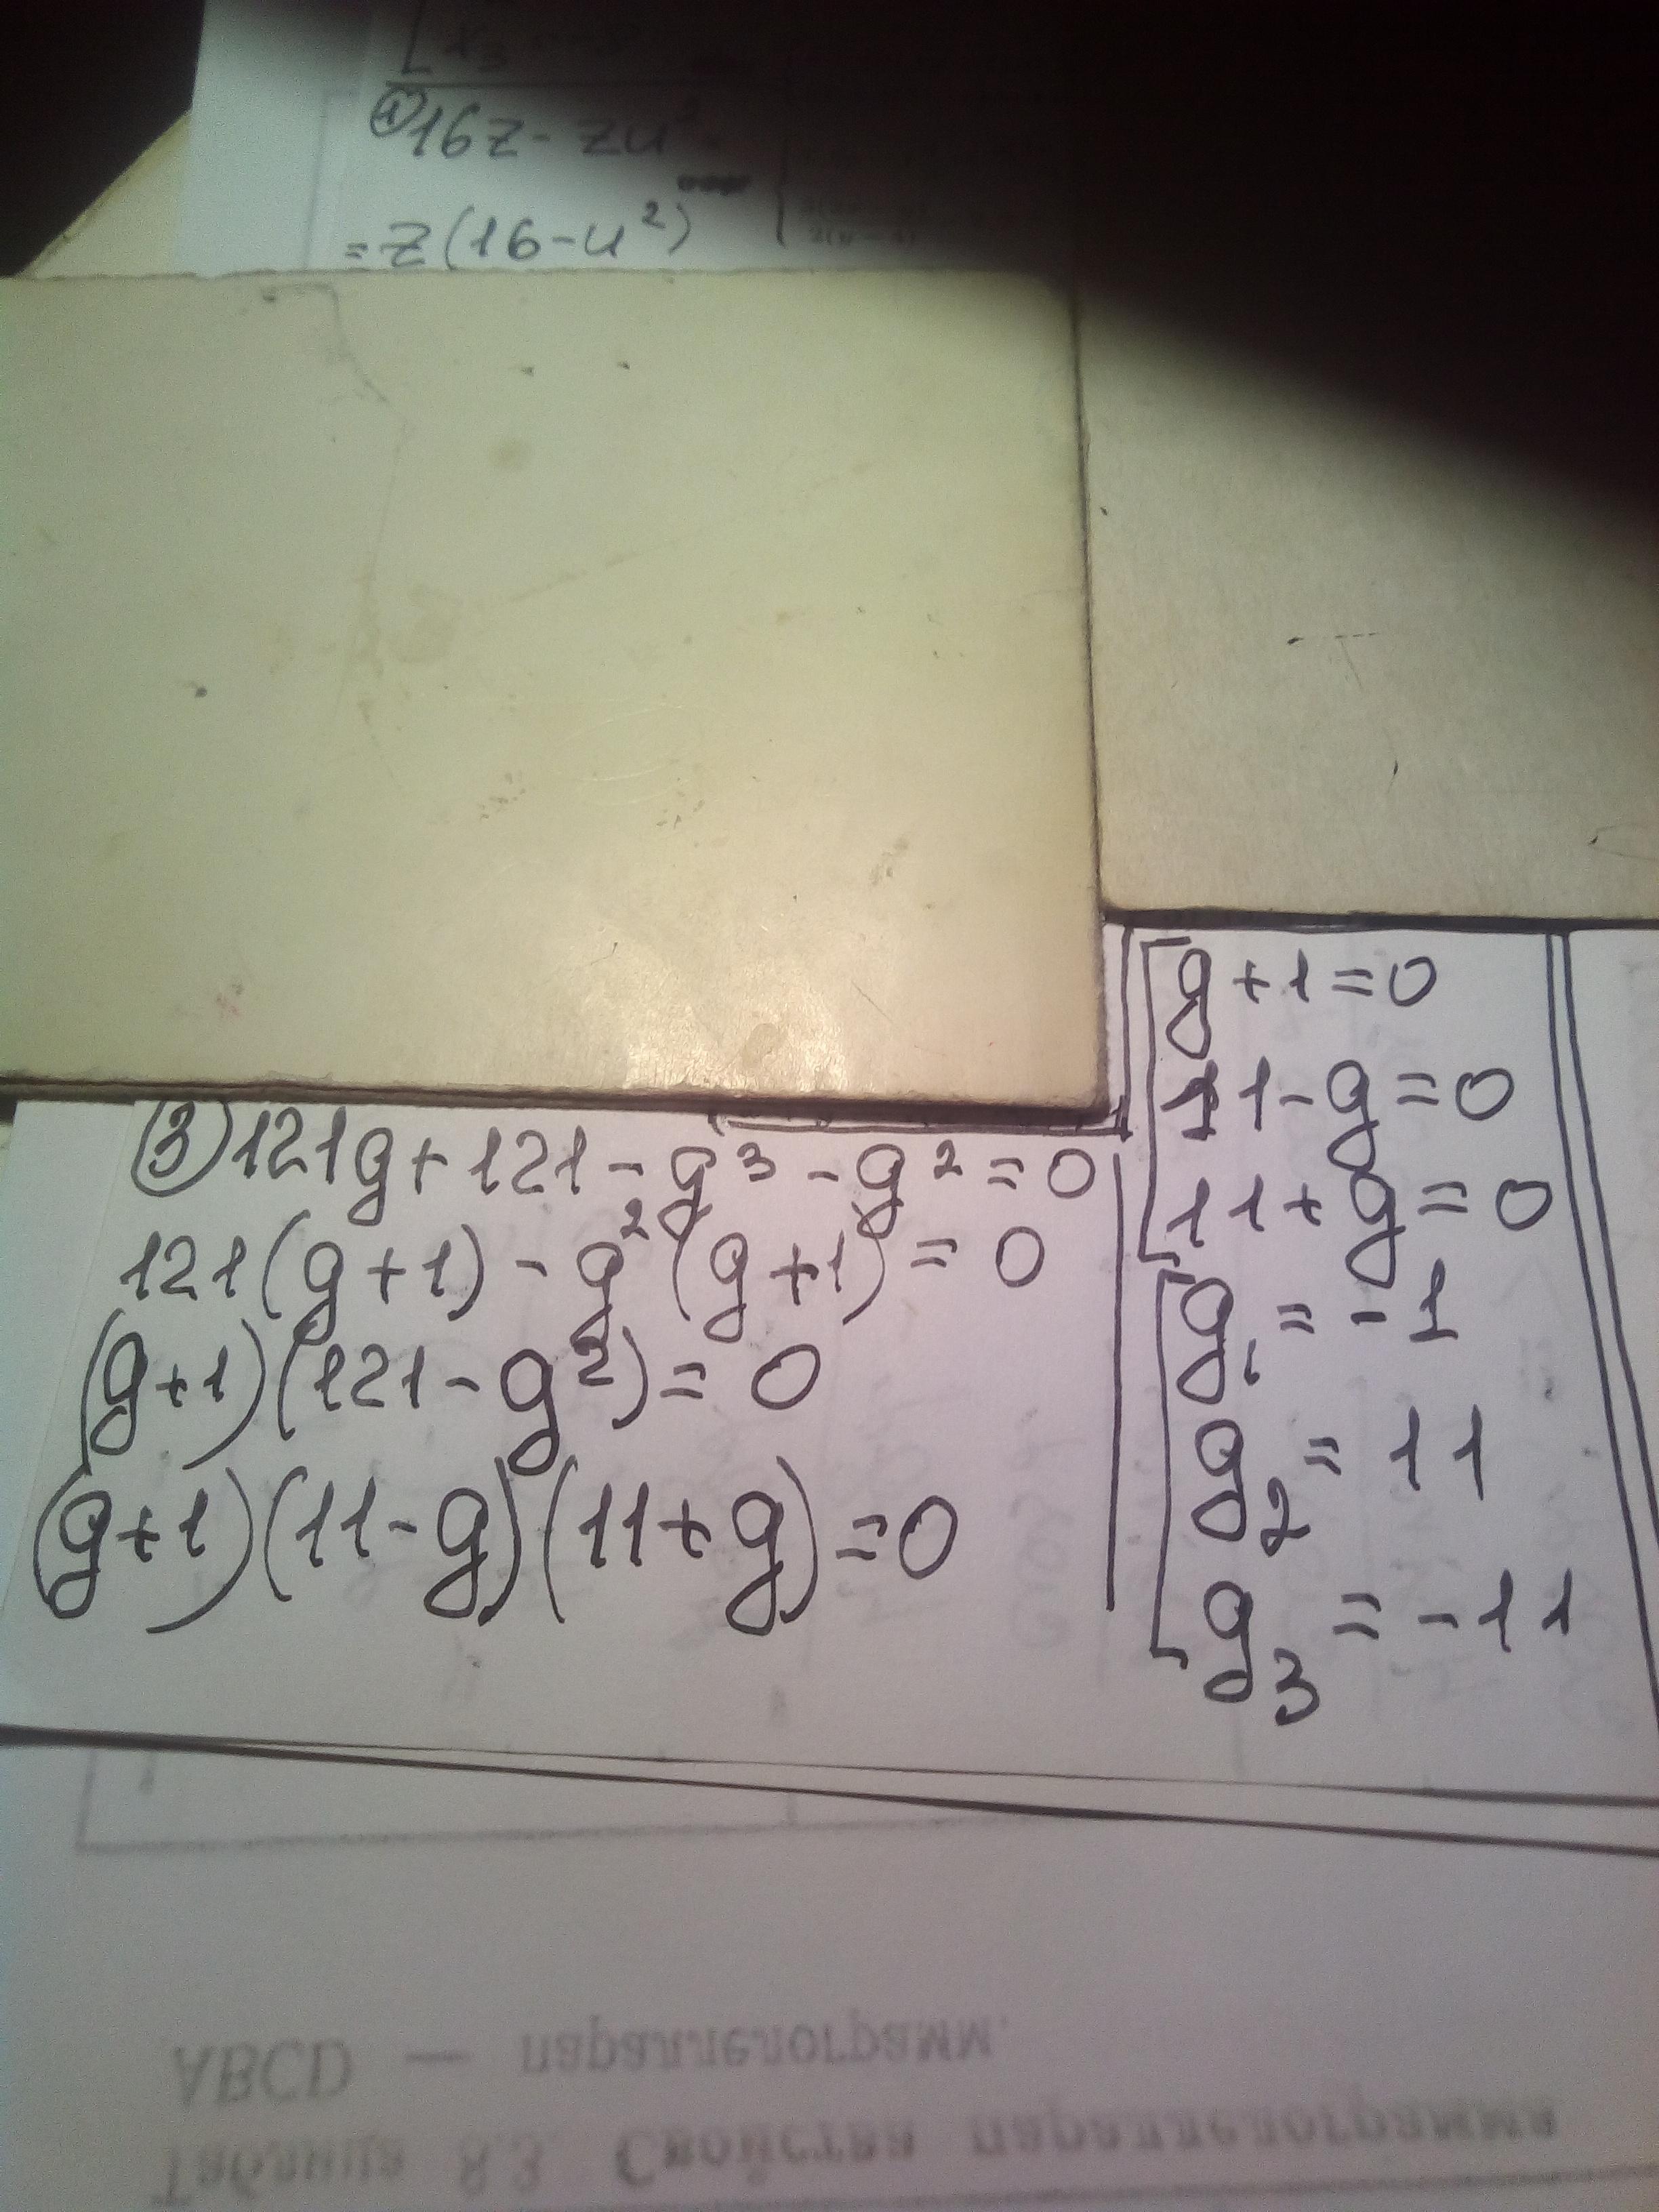 ① 16z - zu²
= z(16 - u²)
③ 121g + 121 - g³ - g² = 0
121(g + 1) - g²(g + 1) = 0
(g + 1)(121 - g²) = 0
(g + 1)(11 - g)(11 + g) = 0
g + 1 = 0
11 - g = 0
11 + g = 0
g₁ = -1
g₂ = 11
g₃ = -11
ABCD — параллелограмм.
Таблица 8.3. Свойства параллелограмма